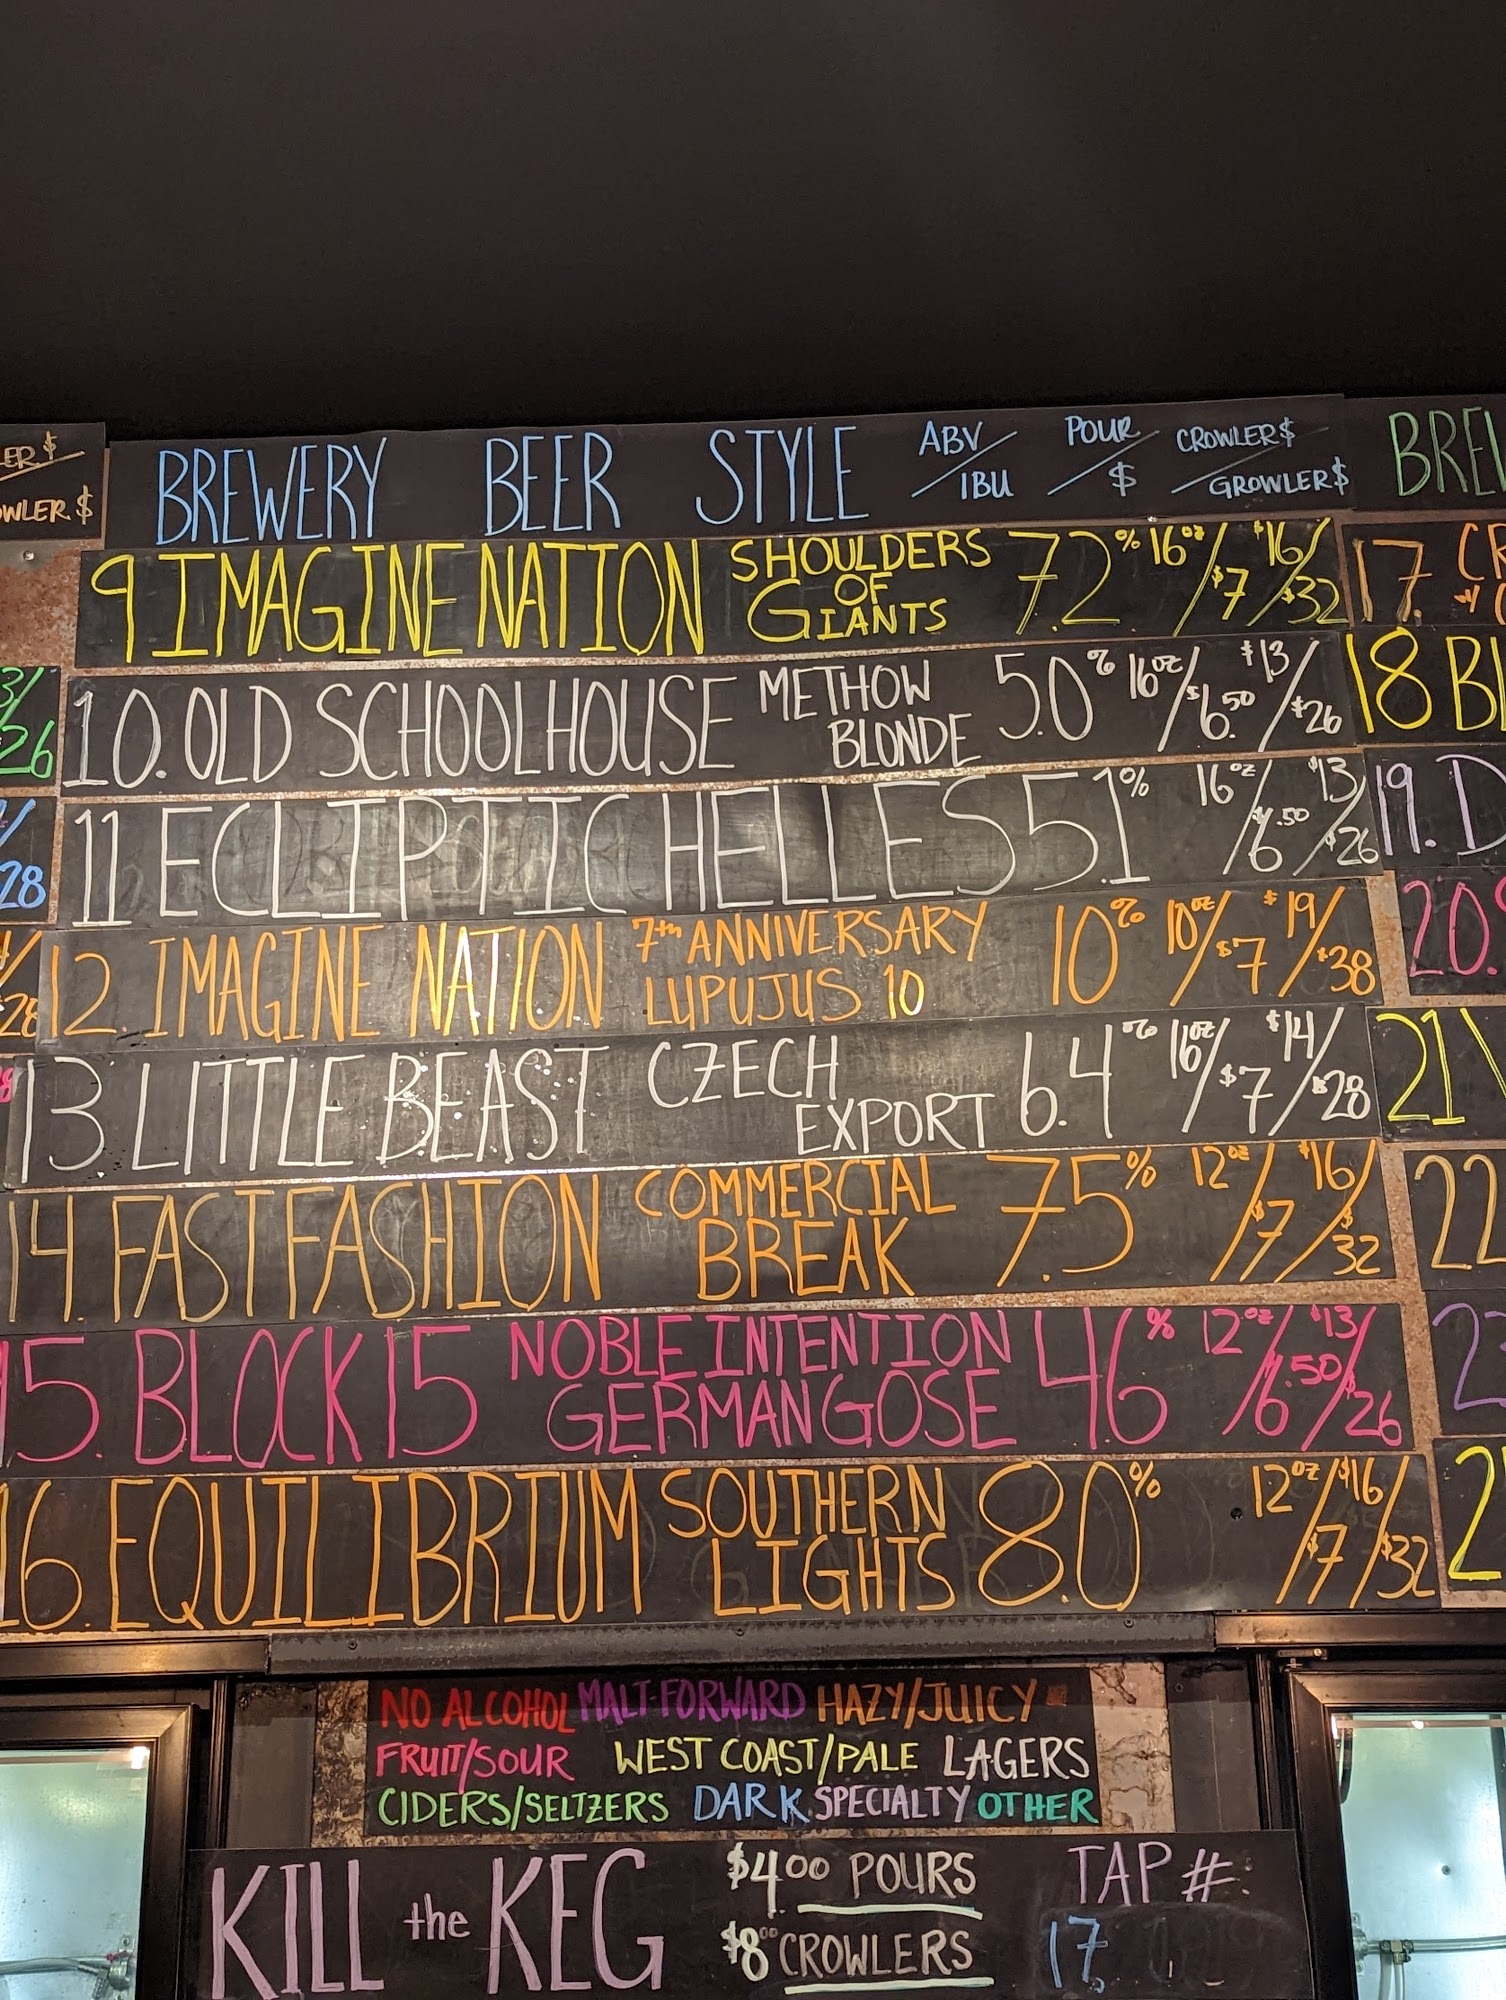 BREWERY BEER STYLE ABV/IBU POUR/$ CROWLER$/GROWLER$
9 IMAGINE NATION SHOULDERS OF GIANTS 7.2% 16oz/$7 $16/$32
10. OLD SCHOOLHOUSE METHOW BLONDE 5.0% 16oz/$6.50 $13/$26
11 ECLIPTIC HELLES 5.1% 16oz/$6.50 $13/$26
12. IMAGINE NATION 7th ANNIVERSARY LUPUJUS 10 10% 10oz/$7 $19/$38
13. LITTLE BEAST CZECH EXPORT 6.4% 16oz/$7 $14/$28
14. FAST FASHION COMMERCIAL BREAK 7.5% 12oz/$7 $16/$32
15. BLOCK 15 NOBLE INTENTION GERMAN GOSE 4.6% 12oz/$6.50 $13/$26
16. EQUILIBRIUM SOUTHERN LIGHTS 8.0% 12oz/$7 $16/$32
17.
18
19.
20.
21
22
NO ALCOHOL MALT-FORWARD HAZY/JUICY
FRUIT/SOUR WEST COAST/PALE LAGERS
CIDERS/SELTZERS DARK SPECIALTY OTHER
KILL the KEG $4.00 POURS TAP #:
$8.00 CROWLERS 17